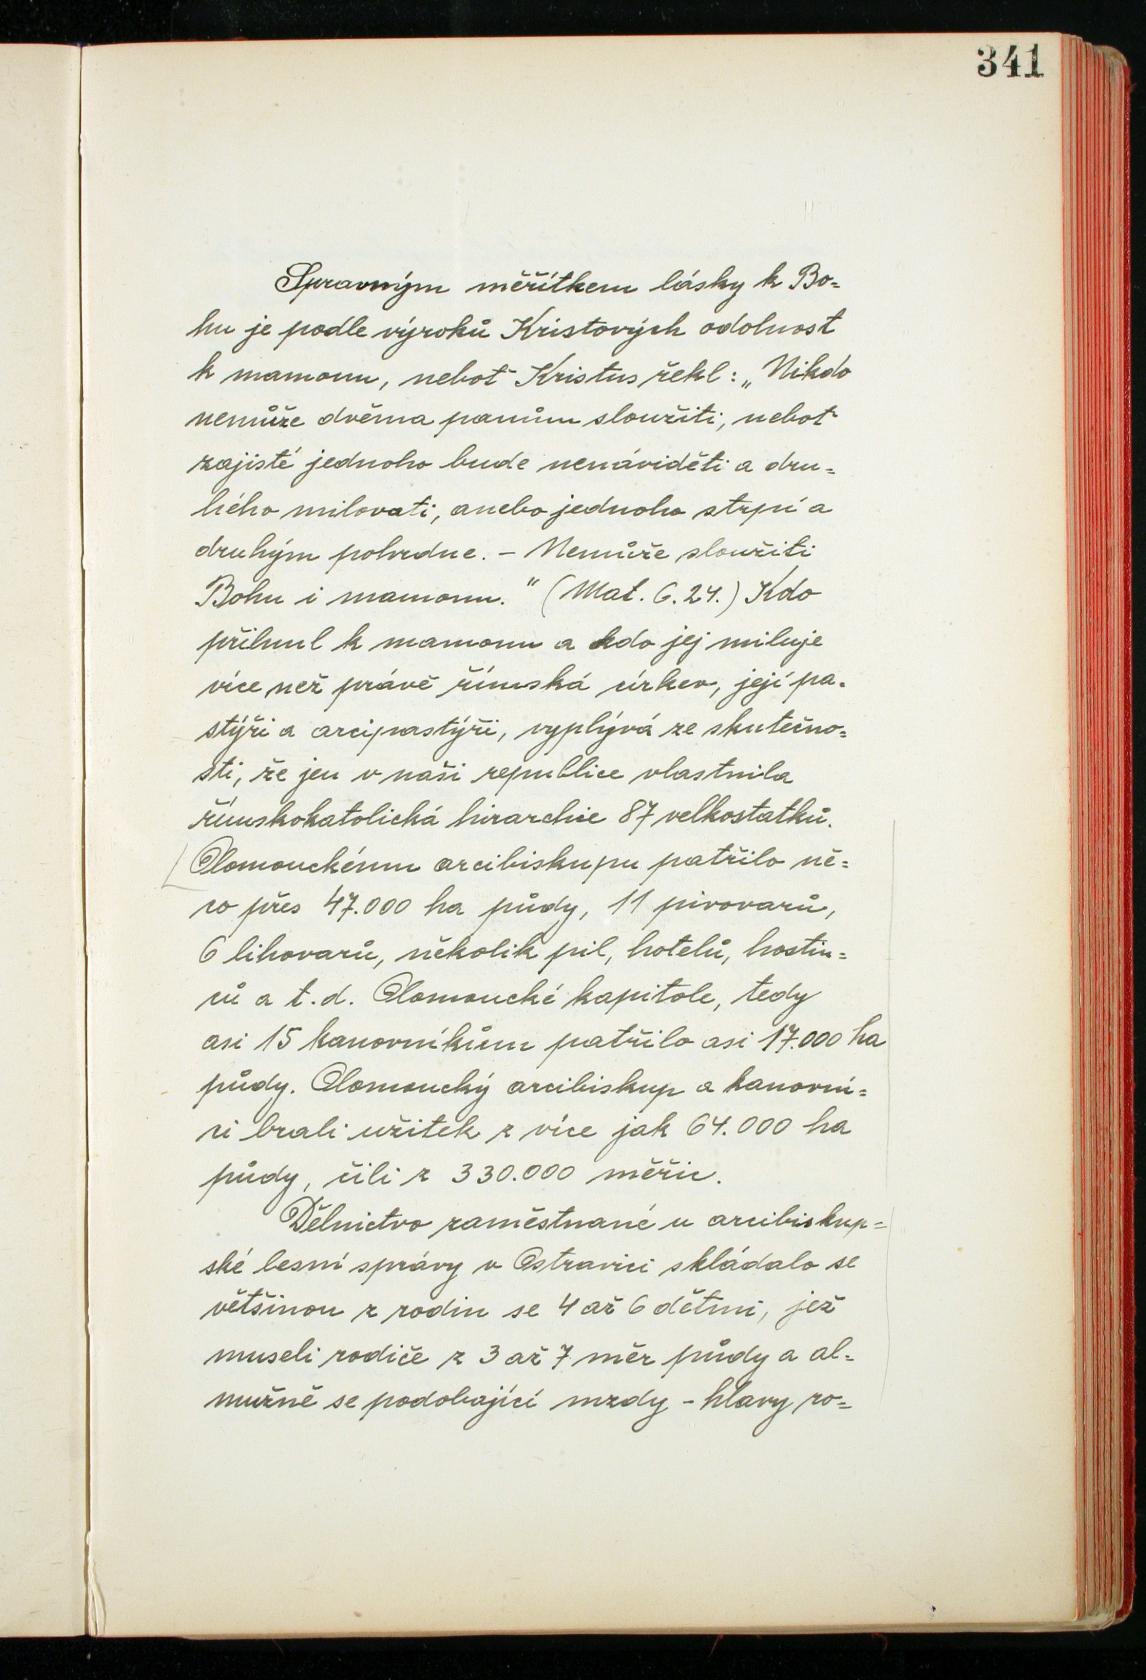 341
Spravným měřítkem lásky k Bo=
hu je podle výroků Kristových odolnost
k mamonu, neboť Kristus řekl: „Nikdo
nemůže dvěma panům sloužiti, neboť
zajisté jednoho bude nenáviděti a dru=
hého milovati, anebo jednoho strpí a
druhým pohrdne. – Nemůže sloužiti
Bohu i mamonu." (Mat. 6. 24.) Kdo
přilnul k mamonu a kdo jej miluje
více než právě římská církev, její pa=
stýři a arcipastýři, vyplývá ze skutečno=
sti, že jen v naši republice vlastnila
římskokatolická hirarchie 87 velkostatků.
Olomouckému arcibiskupu patřilo ně=
co přes 47.000 ha půdy, 11 pivovarů,
6 lihovarů, několik pil, hotelů, hostin=
ců a t.d. Olomoucké kapitole, tedy
asi 15 kanovníkům patřilo asi 17.000 ha
půdy. Olomoucký arcibiskup a kanovní=
ci brali užitek z více jak 64.000 ha
půdy, čili z 330.000 měřic.
Dělnictvo zaměstnané u arcibiskup=
ské lesní správy v Ostravici skládalo se
většinou z rodin se 4 až 6 dětmi, jež
museli rodiče z 3 až 7 měr půdy a al=
mužně se podobající mzdy - hlavy ro=